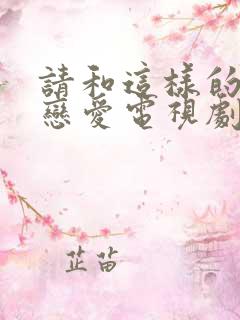 請和這樣的
戀愛電視劇
芷苗